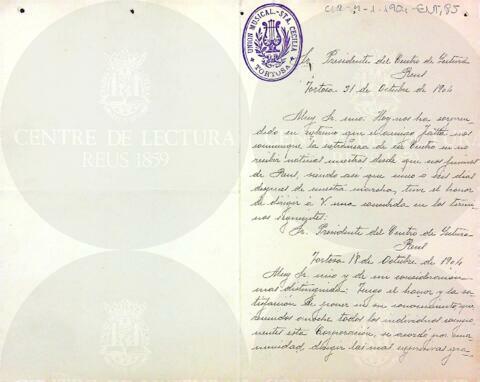 CUR-M-1-1904-ENT, 95
UNION MUSICAL - STA. CECILIA
TORTOSA
CENTRE DE LECTURA
REUS 1859
Sr. Presidente del Centro de Lectura
Reus
Tortosa 31 de Octubre de 1904
Muy Sr. mio: Hoy nos ha sorpren-
dido en extremo que el amigo nos
comunique la extrañeza de ese Centro en no
recibir noticias nuestras desde que nos fuimos
de Reus, siendo asi que cinco o seis dias
despues de nuestra marcha, tuve el honor
de dirigir á V. una comunicada en los termi-
nos siguientes:
Sr. Presidente del Centro de Lectura
Reus
Tortosa 18 de Octubre de 1904
Muy Sr. mio y de mi consideracion
mas distinguida: Tengo el honor y la sa-
tisfaccion de poner en su conocimiento, que
reunidos anoche todos los individuos compo-
nentes esta Corporación, se acordó por una-
nimidad, dirigir las mas expresivas gra-